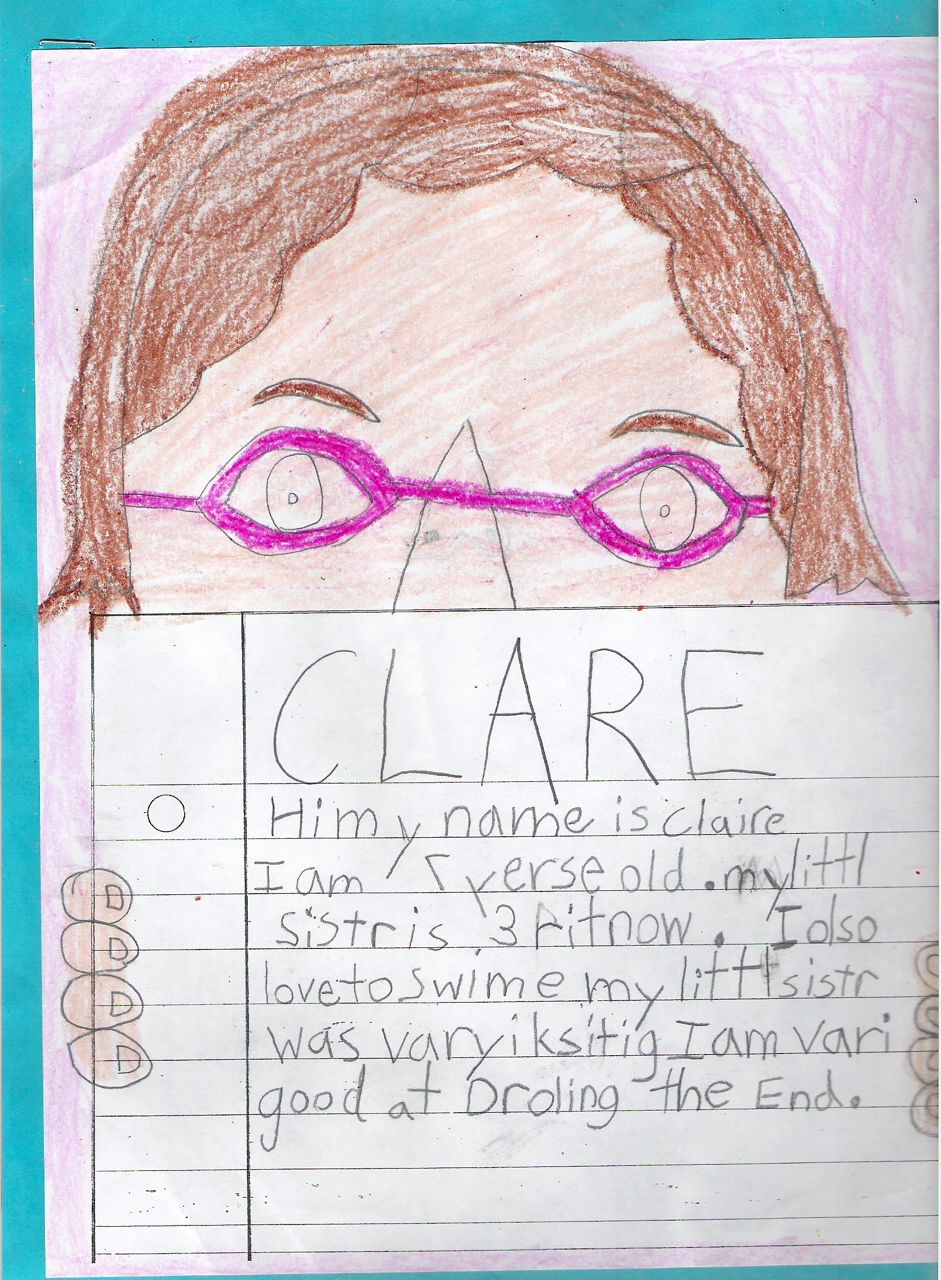 CLARE
Hi my name is claire
I am 5 yerse old . my littl
sistr is 3 ritnow . I olso
love to swime my littl sistr
was vary iksitig I am vari
good at Droling the End.